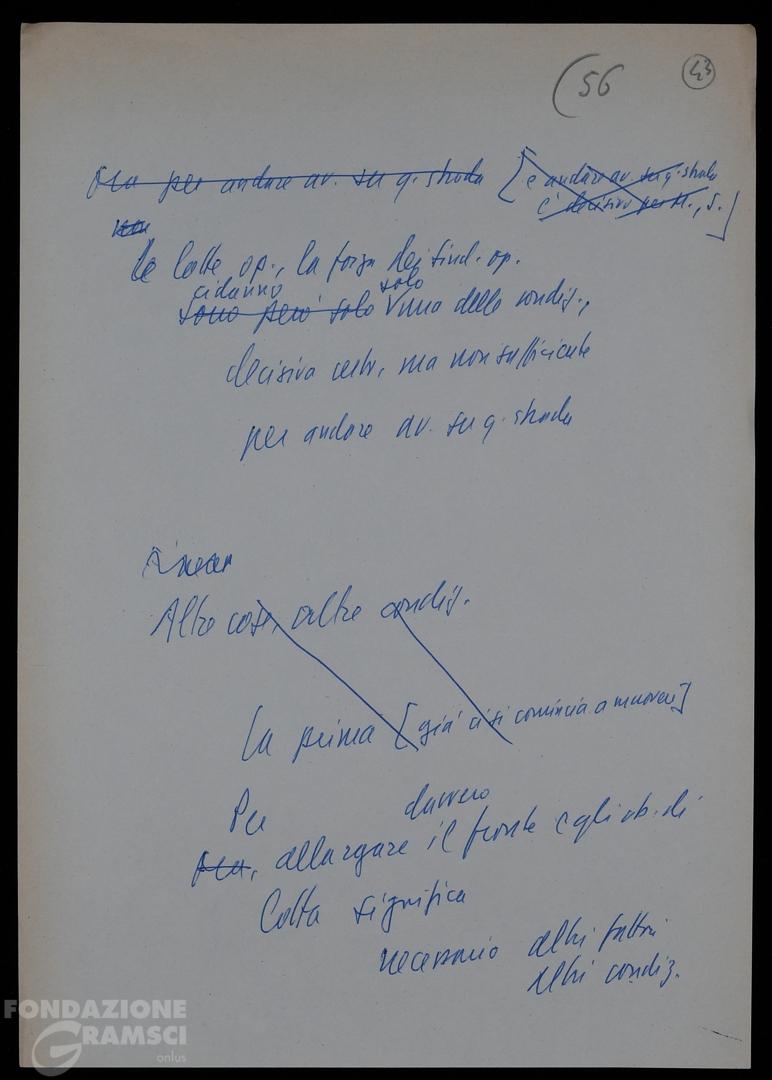 (56
43
Ora per andare av. su q. strada [e andare av. su q. strada
è decisivo per M., S.]
Le lotte op., la forza dei sind. op.
ci danno solo
sono però solo una delle condiz.,
decisiva certo, ma non sufficiente
per andare av. su q. strada
Altre cose, altre condiz.
La prima [già ci si comincia a muovere]
Per davvero
Ora, allargare il fronte e gli ob. di
lotta significa
necessario altri fattori
altri condiz.
FONDAZIONE
GRAMSCI
onlus